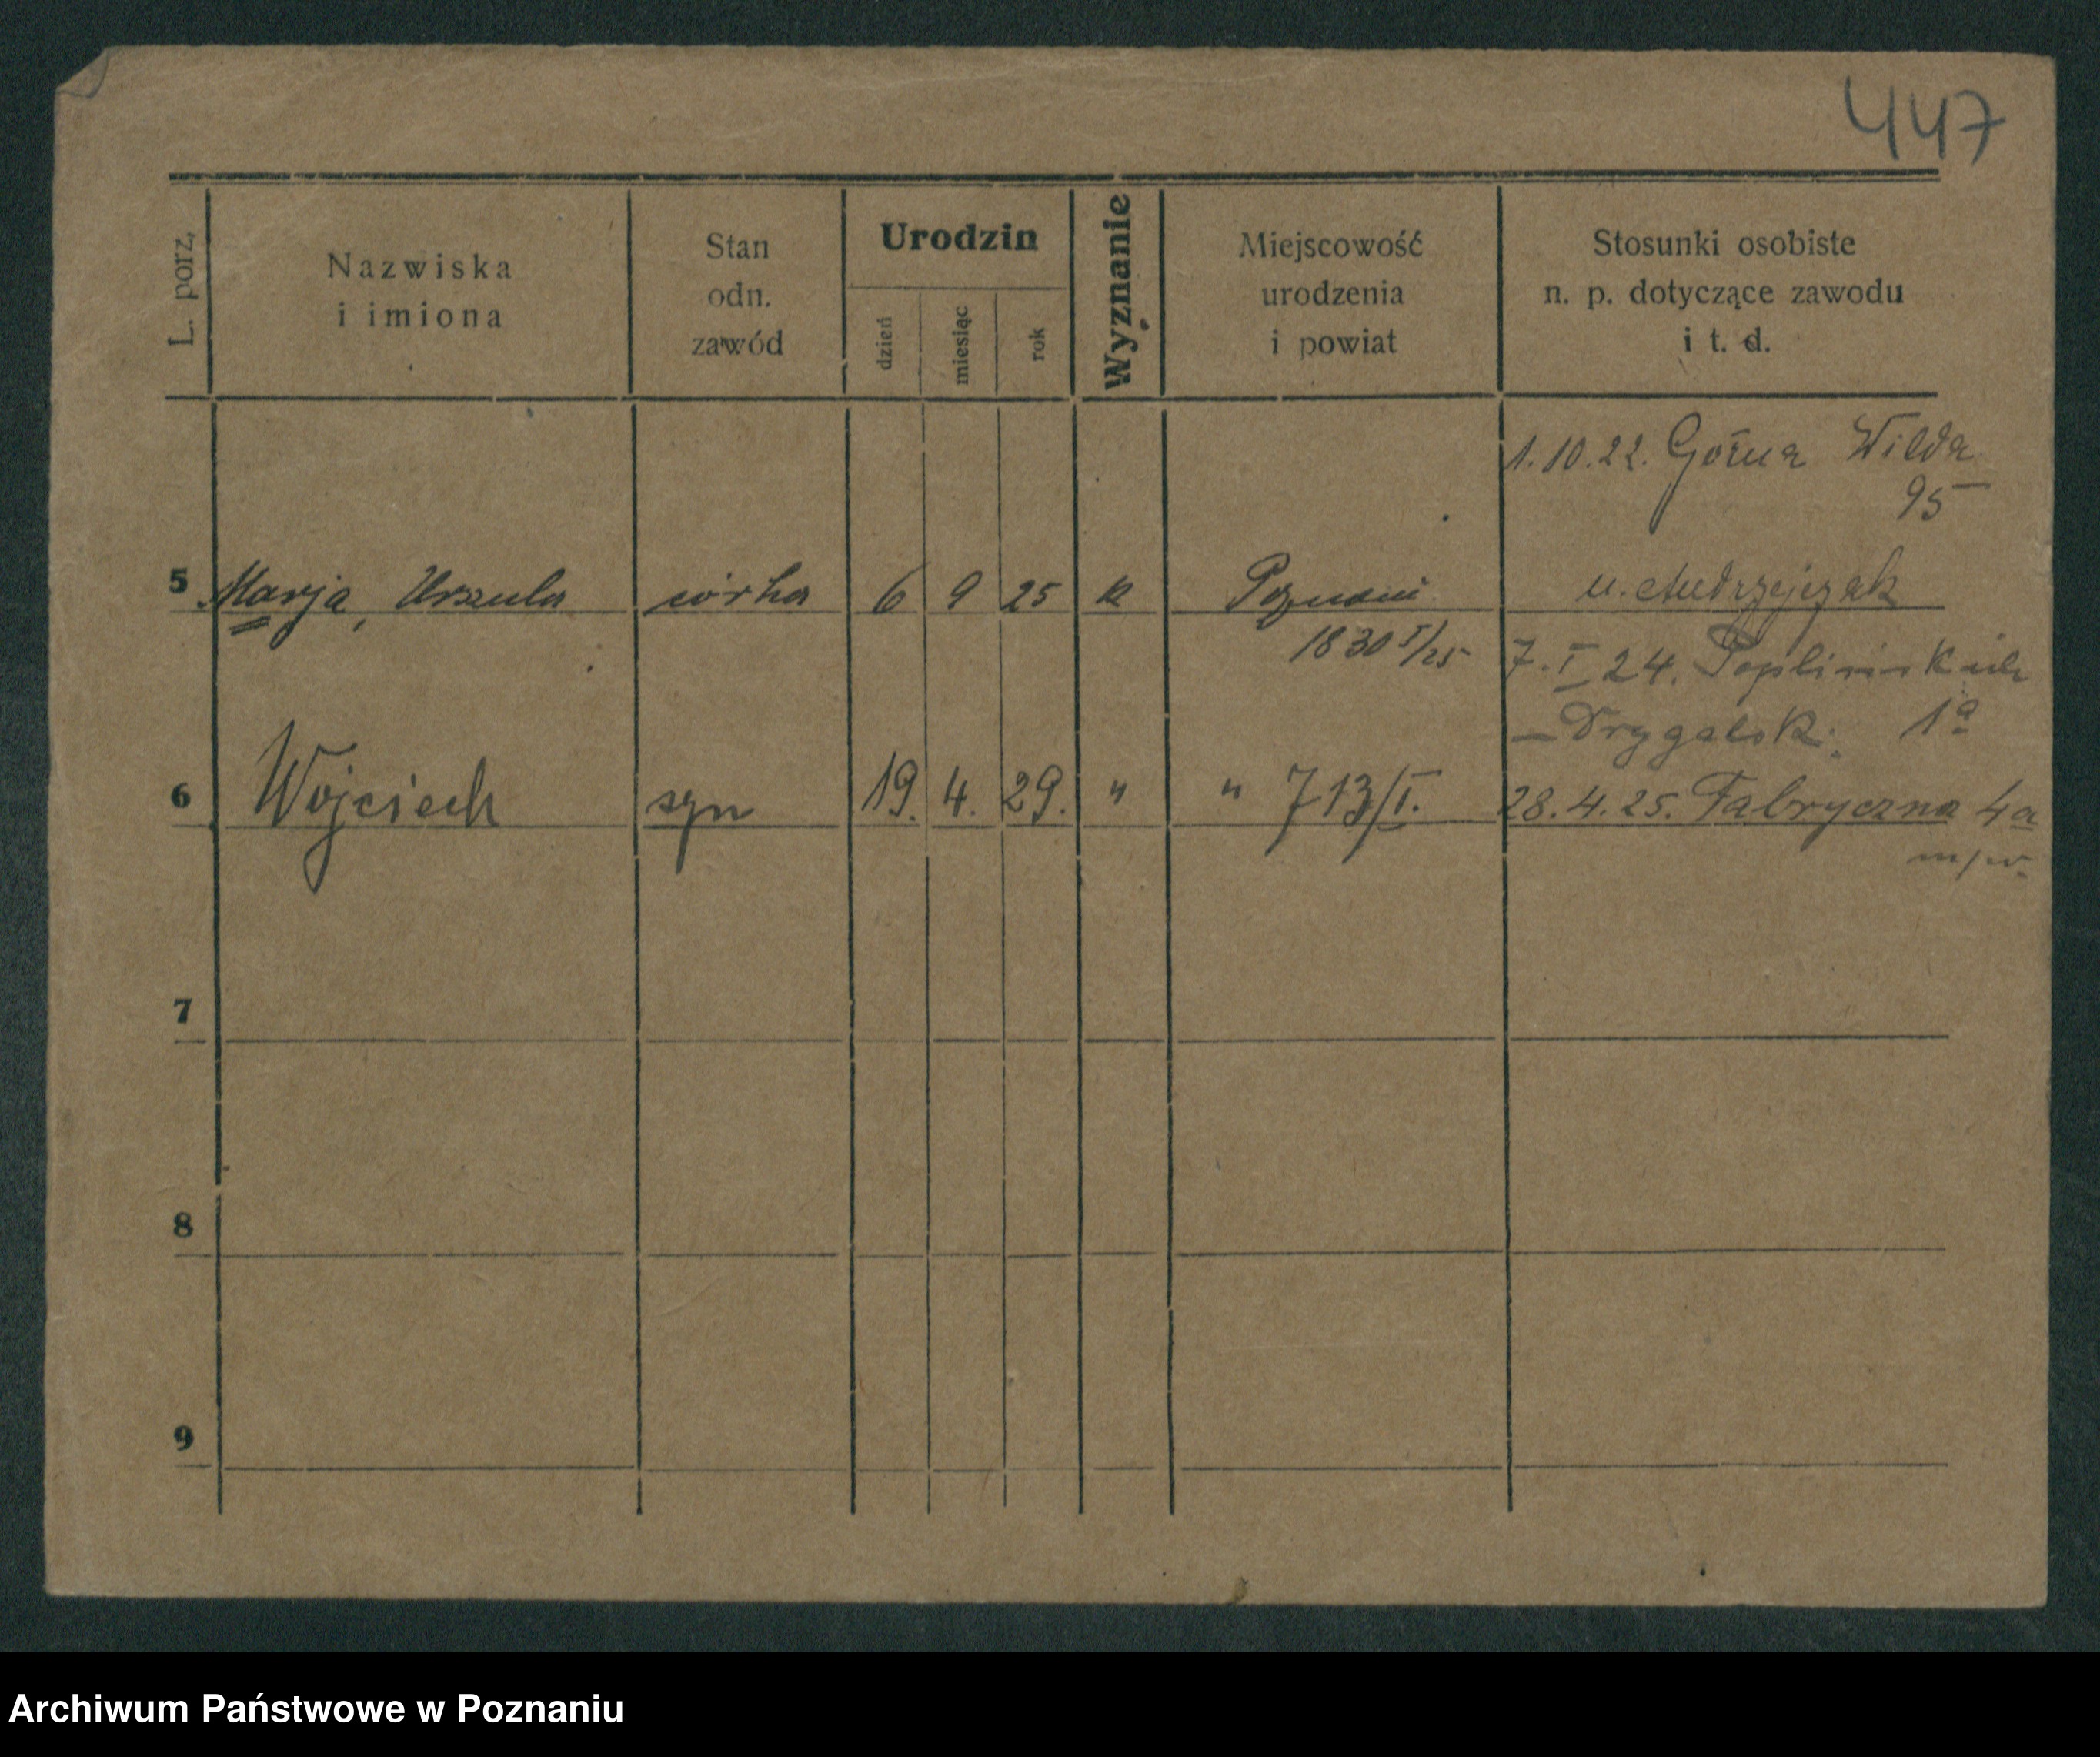 447
L. porz.
Nazwiska
i imiona
Stan
odn.
zawód
Urodzin
dzień
miesiąc
rok
Wyznanie
Miejscowość
urodzenia
i powiat
Stosunki osobiste
n. p. dotyczące zawodu
i t. d.
1.10.22. Górna Wilda
95
5 Marja, Urszula córka 6 9 25 k Poznań u. Andrzejczak
1830 I/25 7. I 24. Poplińskich
1a
– Drygalsk.
6 Wojciech syn 19. 4. 29. " " 713/I. 28.4.25. Fabryczna 4a
m/w.
7
8
9
Archiwum Państwowe w Poznaniu